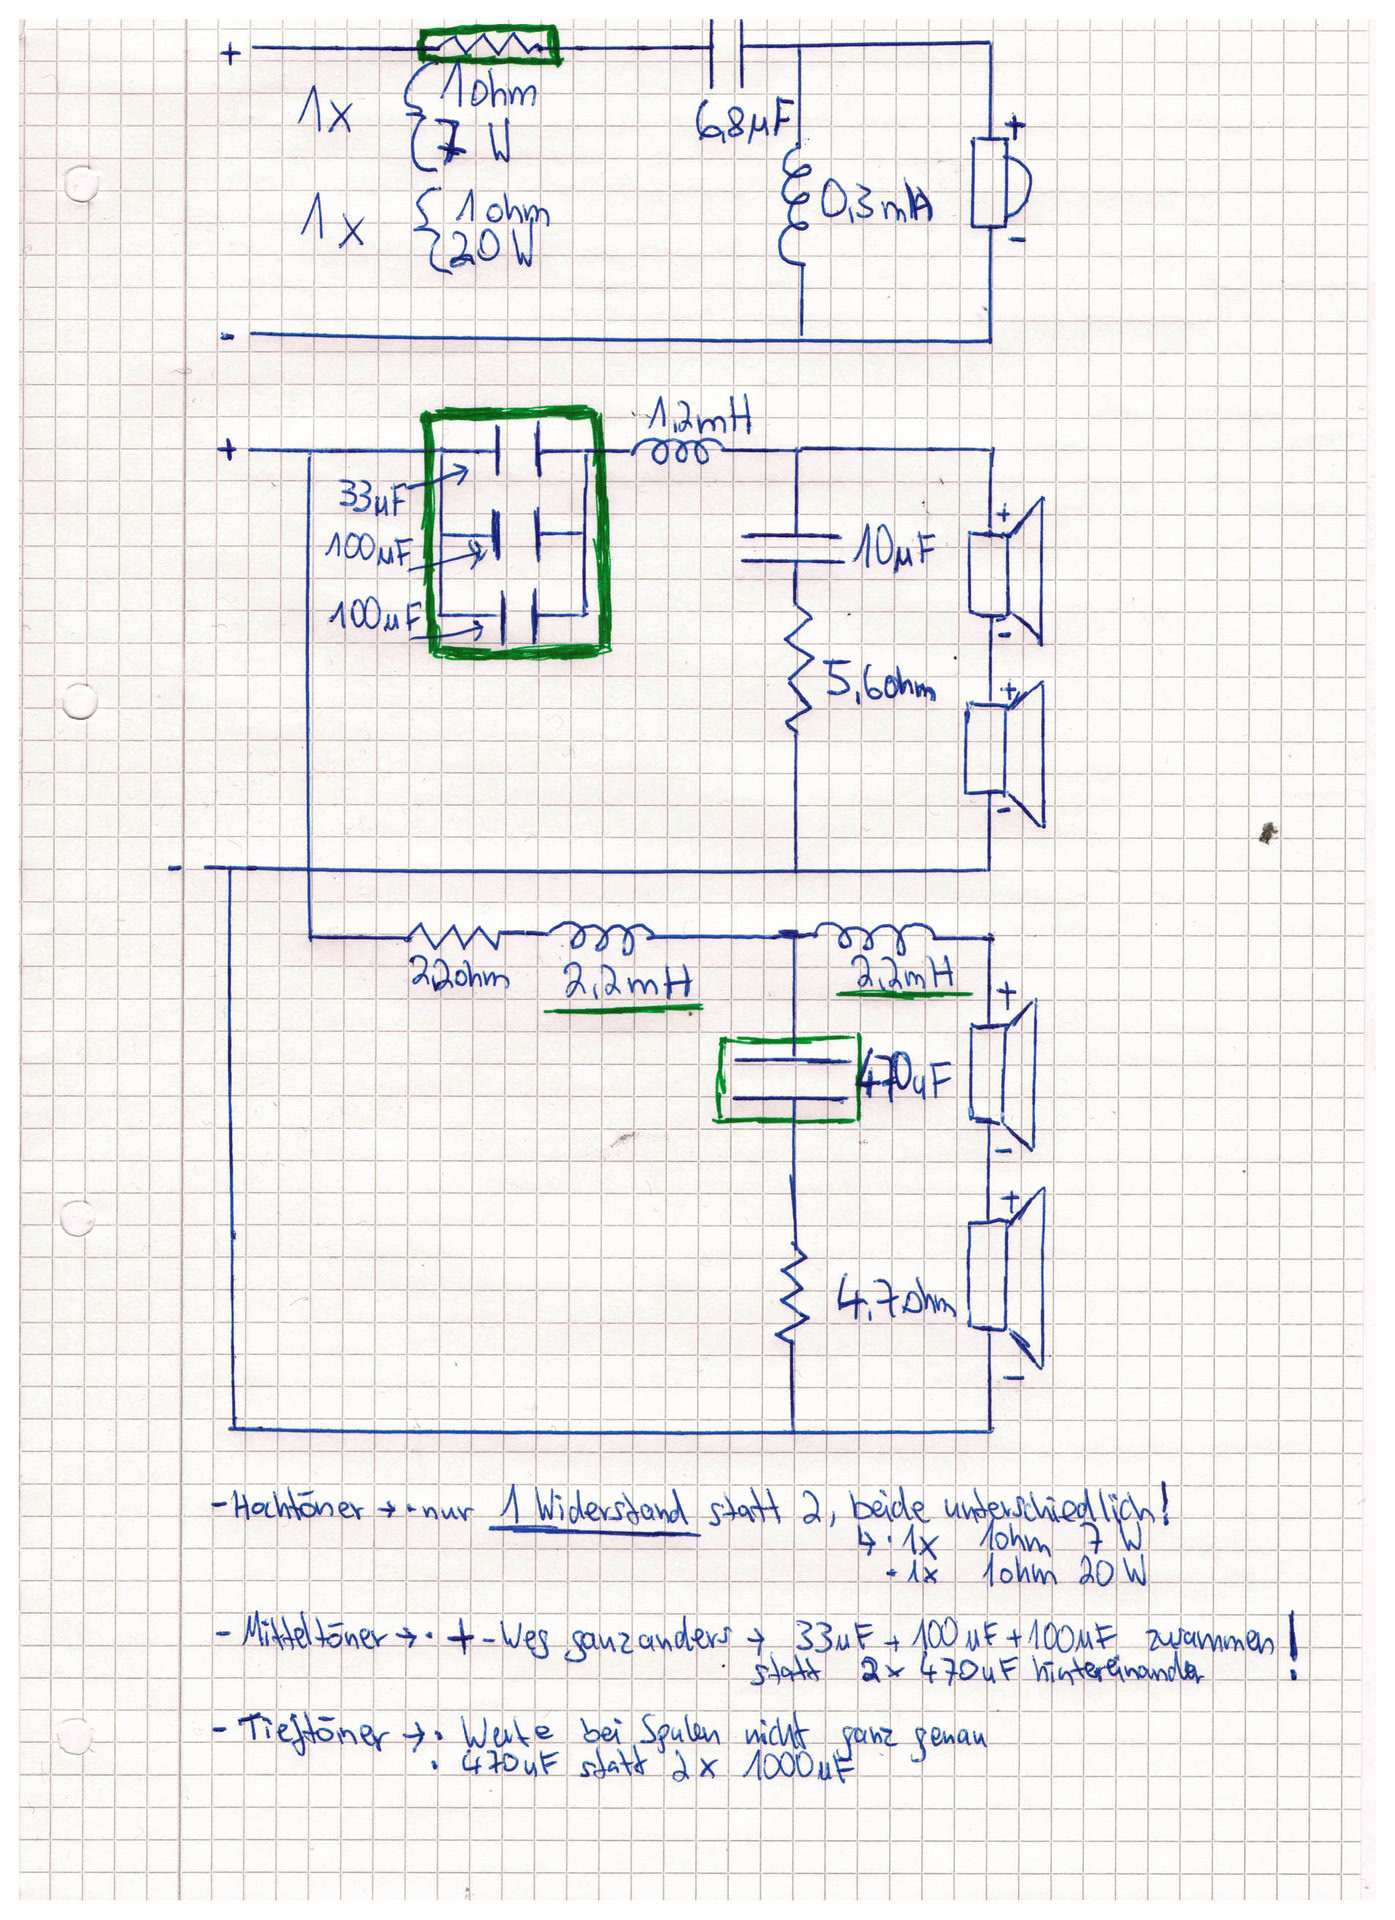 +
1x { 1ohm
7 W
1x { 1ohm
20 W
6,8µF
0,3mH
+
-
-
+
1,2mH
33µF
100µF
100µF
10µF
5,6ohm
+
-
+
-
-
2,2ohm
2,2mH
2,2mH
+
470uF
-
+
4,7ohm
-
- Hochtöner → · nur 1 Widerstand statt 2, beide unterschiedlich!
↳ · 1x 1ohm 7 W
· 1x 1ohm 20 W
- Mitteltöner → · + -Weg ganz anders → 33uF + 100uF + 100uF zusammen!
statt 2x 470uF hintereinander
- Tieftöner → · Werte bei Spulen nicht ganz genau
· 470uF statt 2x 1000uF